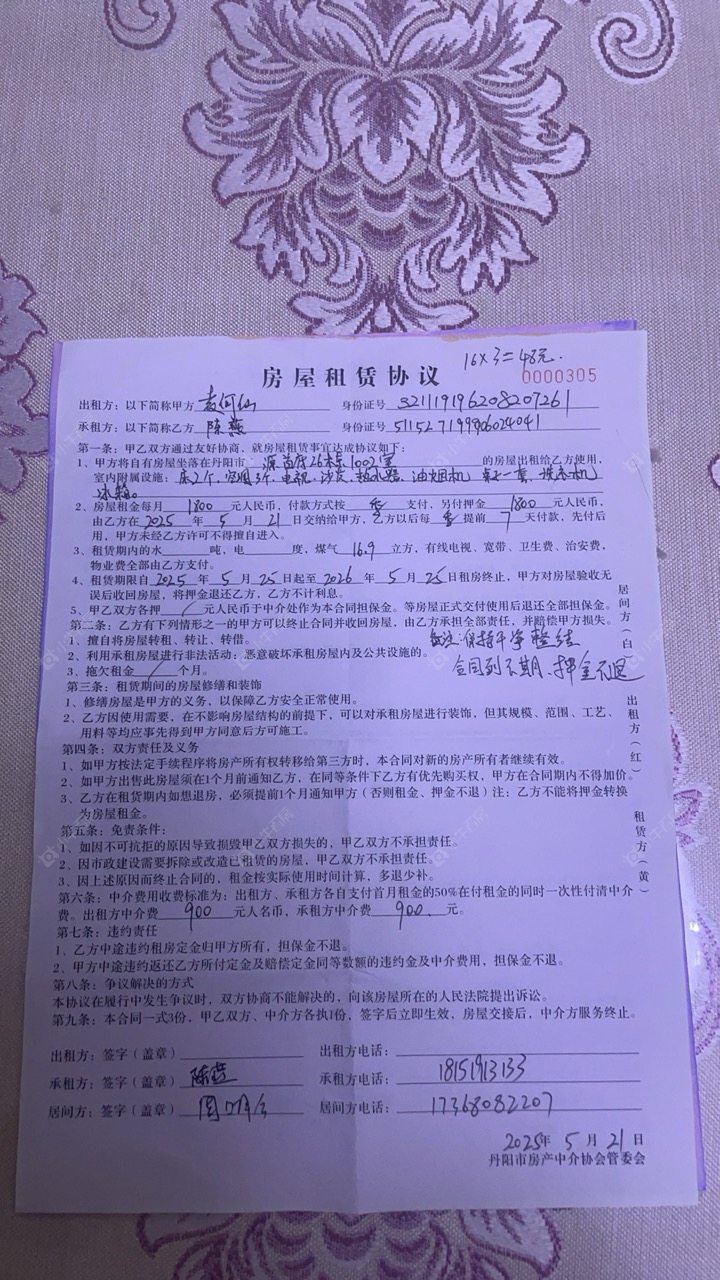 16×3=48元.
房屋租赁协议
0000305
出租方：以下简称甲方 袁何仙 身份证号 321119196208207261
承租方：以下简称乙方 陈燕 身份证号
第一条：甲乙双方通过友好协商，就房屋租赁事宜达成协议如下：
1、甲方将自有房屋坐落在丹阳市 源首府26栋1002室 的房屋出租给乙方使用，
室内附属设施：床2个，空调3个，电视，沙发，热水器，油烟机 桌七一套，洗衣机
冰箱。
2、房屋租金每月 1800 元人民币，付款方式按 季 支付，另付押金 1800 元人民币，
由乙方在 2025 年 5 月 21 日交纳给甲方，乙方以后每 季 提前 7 天付款，先付后
用，甲方未经乙方许可不得擅自进入。
3、租赁期内的水 吨，电 度，煤气 16.9 立方，有线电视、宽带、卫生费、治安费，
物业费全部由乙方支付。
4、租赁期限自 2025 年 5 月 25 日起至 2026 年 5 月 25 日租房终止，甲方对房屋验收无
误后收回房屋，将押金退还乙方，乙方不计利息。
5、甲乙双方各押 / 元人民币于中介处作为本合同担保金。等房屋正式交付使用后退还全部担保金。
第二条：乙方有下列情形之一的甲方可以终止合同并收回房屋，由乙方承担全部责任，并赔偿甲方损失。
1、擅自将房屋转租、转让、转借。
备注：保持干净整结
2、利用承租房屋进行非法活动；恶意破坏承租房屋内及公共设施的。
合同到不期，押金不退
3、拖欠租金 / 个月。
第三条：租赁期间的房屋修缮和装饰
1、修缮房屋是甲方的义务，以保障乙方安全正常使用。
2、乙方因使用需要，在不影响房屋结构的前提下，可以对承租房屋进行装饰，但其规模、范围、工艺、
用料等均应事先得到甲方同意后方可施工。
第四条：双方责任及义务
1、如甲方按法定手续程序将房产所有权转移给第三方时，本合同对新的房产所有者继续有效。
2、如甲方出售此房屋须在1个月前通知乙方，在同等条件下乙方有优先购买权，甲方在合同期内不得加价。
3、乙方在租赁期内如想退房，必须提前1个月通知甲方（否则租金、押金不退）注：乙方不能将押金转换
为房屋租金。
第五条：免责条件：
1、如因不可抗拒的原因导致损毁甲乙双方损失的，甲乙双方不承担责任。
2、因市政建设需要拆除或改造已租赁的房屋，甲乙双方不承担责任。
3、因上述原因而终止合同的，租金按实际使用时间计算，多退少补。
第六条：中介费用收费标准为：出租方、承租方各自支付首月租金的50%在付租金的同时一次性付清中介
费。出租方中介费 900 元人名币，承租方中介费 900. 元。
第七条：违约责任
1、乙方中途违约租房定金归甲方所有，担保金不退。
2、甲方中途违约返还乙方所付定金及赔偿定金同等数额的违约金及中介费用，担保金不退。
第八条：争议解决的方式
本协议在履行中发生争议时，双方协商不能解决的，向该房屋所在的人民法院提出诉讼。
第九条：本合同一式3份，甲乙双方、中介方各执1份，签字后立即生效，房屋交接后，中介方服务终止。
居间方（白）
出租方（红）
租赁方（黄）
出租方：签字（盖章） 出租方电话：
承租方：签字（盖章） 陈燕 承租方电话： 18151913133
居间方：签字（盖章） 居间方电话： 17368082207
2025年 5 月 21 日
丹阳市房产中介协会管委会